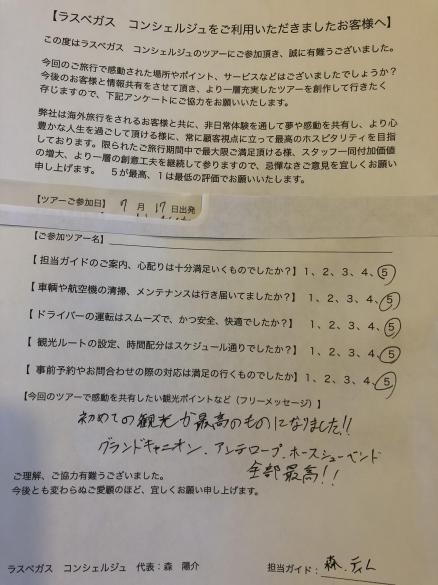 【ラスベガス　コンシェルジュをご利用いただきましたお客様へ】
この度はラスベガス　コンシェルジュのツアーにご参加頂き、誠に有難うございました。
今回のご旅行で感動された場所やポイント、サービスなどはございましたでしょうか？
今後のお客様と情報共有をさせて頂き、より一層充実したツアーを創作して行きたく
存じますので、下記アンケートにご協力をお願いいたします。
弊社は海外旅行をされるお客様と共に、非日常体験を通して夢や感動を共有し、より心
豊かな人生を過ごして頂ける様に、常に顧客視点に立って最高のホスピタリティを目指
しております。限られたご旅行期間中で最大限ご満足頂ける様、スタッフ一同付加価値
の増大、より一層の創意工夫を継続して参りますので、忌憚なきご意見を宜しくお願い
申し上げます。　５が最高、１は最低の評価でお願いいたします。
【ツアーご参加日】 9 月 17 日出発
【ご参加ツアー名】
【 担当ガイドのご案内、心配りは十分満足いくものでしたか？】 1、2、3、4、5
【 車輌や航空機の清掃、メンテナンスは行き届いてましたか？】 1、2、3、4、5
【 ドライバーの運転はスムーズで、かつ安全、快適でしたか？】 1、2、3、4、5
【 観光ルートの設定、時間配分はスケジュール通りでしたか？】 1、2、3、4、5
【 事前予約やお問合わせの際の対応は満足の行くものでしたか】 1、2、3、4、5
【今回のツアーで感動を共有したい観光ポイントなど（フリーメッセージ）】
初めての観光が最高のものになりました!!
グランドキャニオン、アンテロープ、ホースシューベンド
全部最高！！
ご理解、ご協力有難うございました。
今後とも変わらぬご愛顧のほど、宜しくお願い申し上げます。
ラスベガス　コンシェルジュ　代表：森　陽介
担当ガイド： 森.